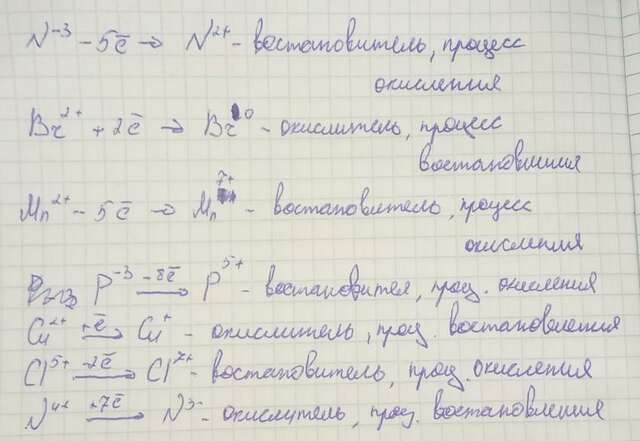 N⁻³ - 5ē → N²⁺ - востановитель, процесс
окисления
Br²⁺ + 2ē → Br⁰ - окислитель, процесс
востановлиния
Mn²⁺ - 5ē → Mn⁷⁺ - востановитель, процесс
окисления
P⁻³ -8ē → P⁵⁺ - востановител, проц. окисления
Cu²⁺ +ē → Cu⁺ - окислитель, проц. востановления
Cl⁵⁺ -2ē → Cl⁷⁺ - востановитель, проц. окисления
N⁴⁺ +7ē → N³⁻ - окислитель, проц. востановления